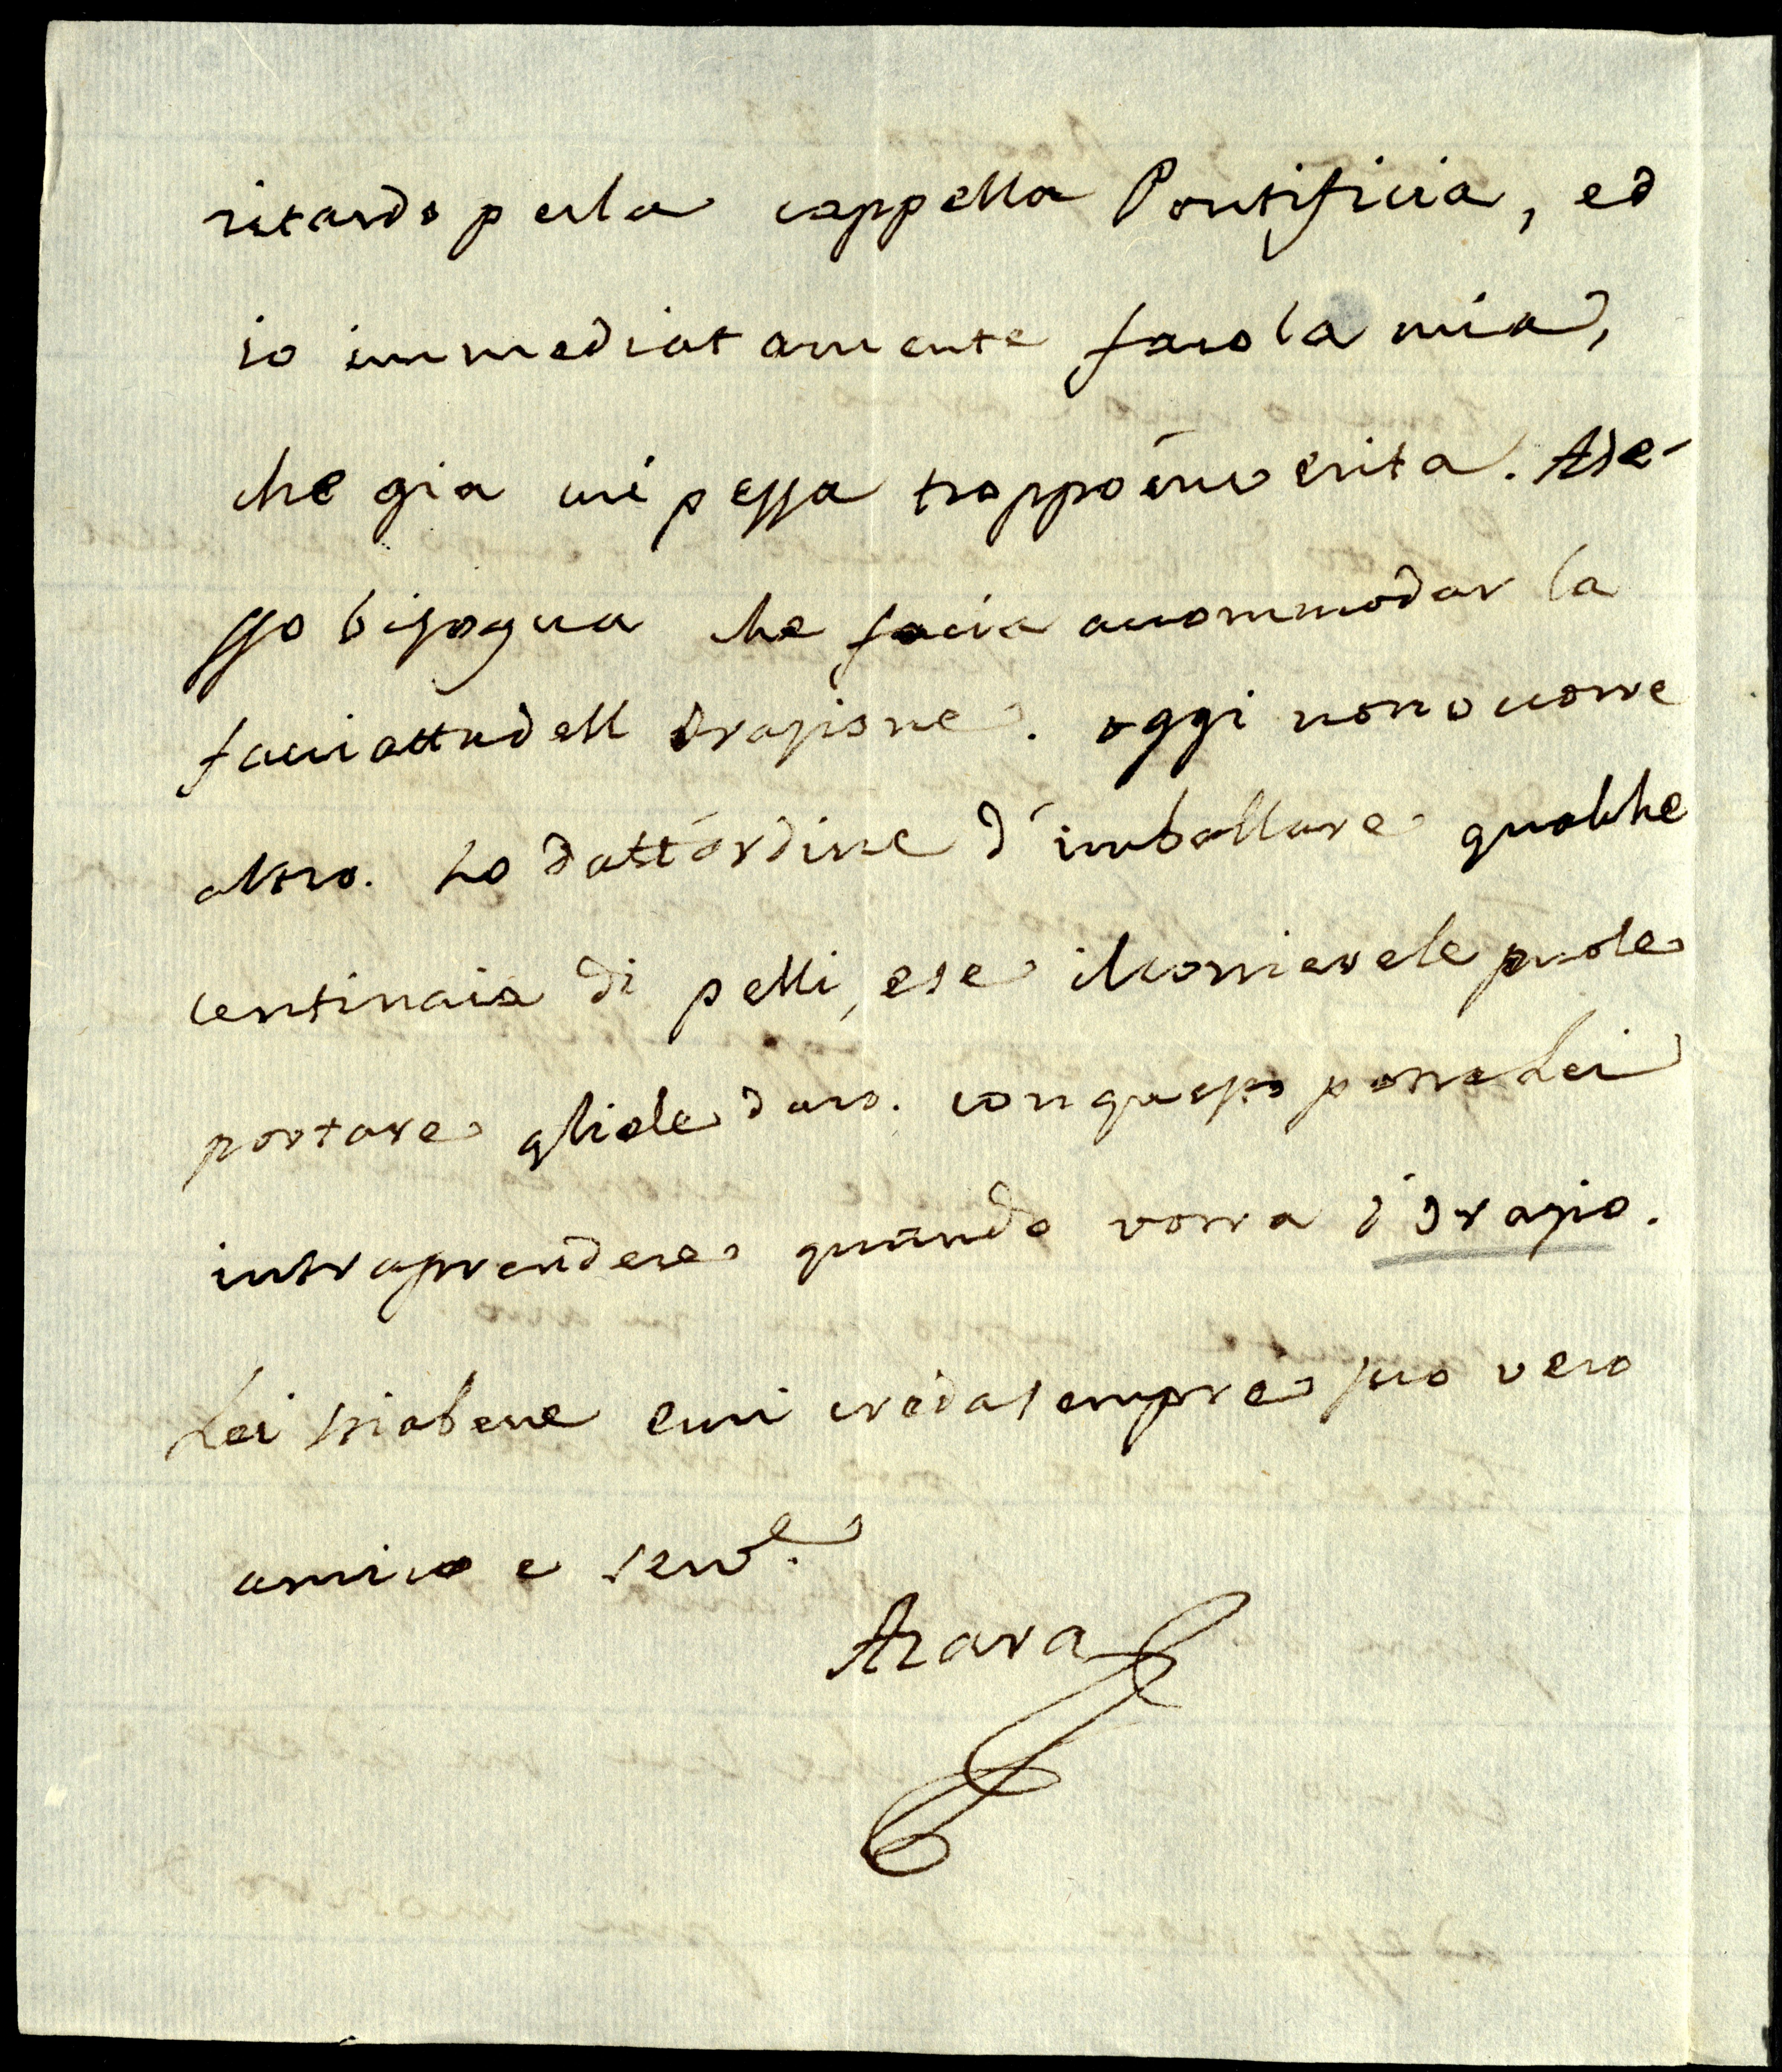 ritardo per la cappella Pontificia, ed
io immediatamente faro la mia,
che gia mi pessa troppo in verita. Ade-
sso bisogna che facia accommodar la
facciatta dell Orazione. oggi non ocorre
altro. ho datt'ordine d'imballare qualche
centinaia di pelli, e se il corriere le puole
portare gliele daro. con questo porra Lei
intraprendere quando vorra l'Orazio.
Lei stia bene e mi creda sempre suo vero
amico e serv.e
Azara